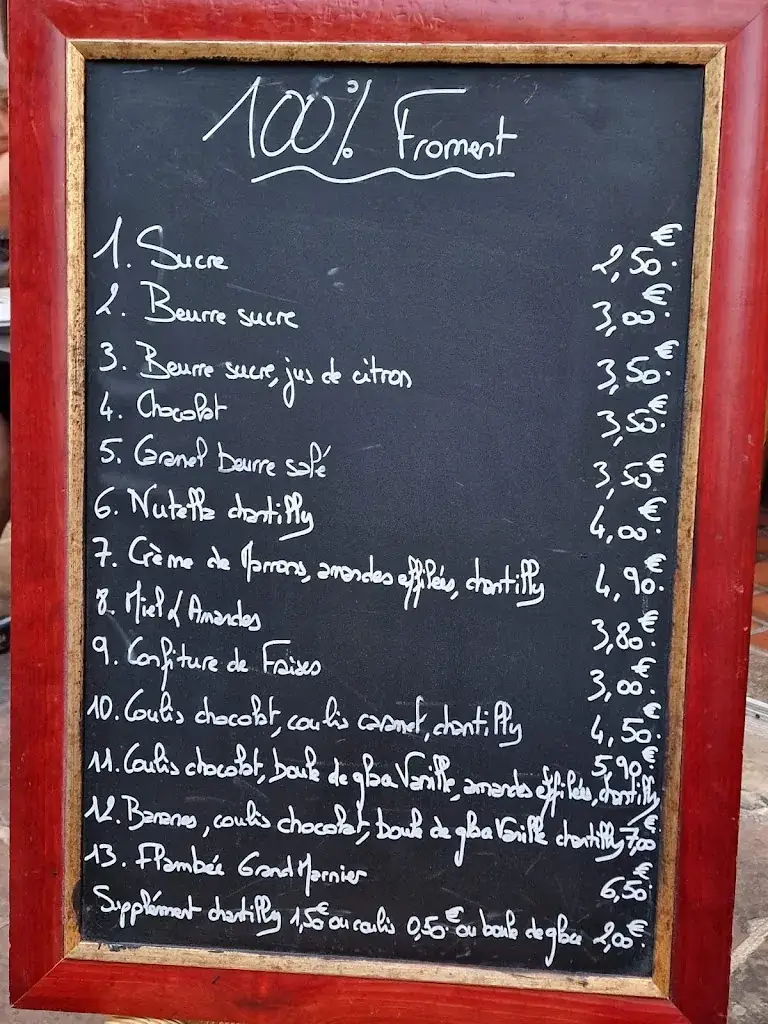 100% Froment
1. Sucre 2,50€.
2. Beurre sucre 3,00€.
3. Beurre sucre, jus de citron 3,50€.
4. Chocolat 3,50€.
5. Caramel beurre salé 3,50€
6. Nutella chantilly 4,00€.
7. Crème de Marrons, amandes effilées, chantilly 4,90€.
8. Miel & Amandes 3,80€.
9. Confiture de Fraises 3,00€.
10. Coulis chocolat, coulis caramel, chantilly 4,50€.
11. Coulis chocolat, boule de glace Vanille, amandes effilées, chantilly 5,90€.
12. Bananes, coulis chocolat, boule de glace Vanille chantilly 7,00€.
13. Flambée Grand Marnier 6,50€.
Supplément chantilly 1,50€ ou coulis 0,50€ ou boule de glace 2,00€.